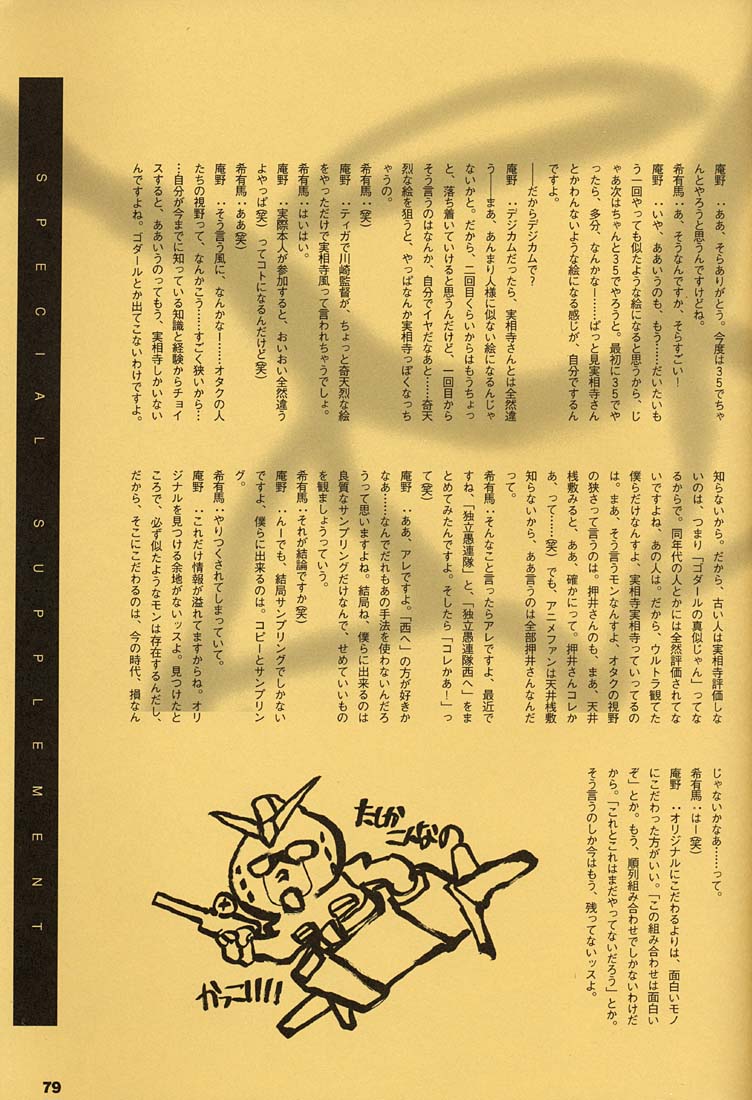 庵野　：ああ、そらありがとう。今度は３５でちゃ
んとやろうと思うんですけどね。
希有馬：あ、そうなんですか、そらすごい！
庵野　：いや、ああいうのも、もう……だいたいも
う一回やっても似たような絵になると思うから、じ
ゃあ次はちゃんと３５でやろうと。最初に３５でや
ったら、多分、なんかな―……ぱっと見実相寺さん
とかわんないような絵になる感じが、自分でするん
ですよ。
――だからデジカムで？
庵野　：デジカムだったら、実相寺さんとは全然違
う――まあ、あんまり人様に似ない絵になるんじゃ
ないかと。だから、二回目くらいからはもうちょっ
と、落ち着いていけると思うんだけど、一回目から
そう言うのはなんか、自分でイヤだなあと……奇天
烈な絵を狙うと、やっぱなんか実相寺っぽくなっち
ゃうの。
希有馬：（笑）
庵野　：ティガで川崎監督が、ちょっと奇天烈な絵
をやっただけで実相寺風って言われちゃうでしょ。
希有馬：はいはい。
庵野　：実際本人が参加すると、おいおい全然違う
よやっぱ（笑）ってコトになるんだけど（笑）
希有馬：ああ（笑）
庵野　：そう言う風に、なんかな―……オタクの人
たちの視野って、なんかこう……すごく狭いから…
…自分が今までに知っている知識と経験からチョイ
スすると、ああいうのってもう、実相寺しかいない
んですよね。ゴダールとか出てこないわけですよ。
知らないから。だから、古い人は実相寺評価しな
いのは、つまり「ゴダールの真似じゃん」ってな
るからで。同年代の人とかには全然評価されてな
いですよね、あの人は。だから、ウルトラ観てた
僕らだけなんすよ、実相寺実相寺っていってるの
は。まあ、そう言うモンなんすよ、オタクの視野
の狭さって言うのは。押井さんのも、まあ、天井
桟敷みると、ああ、確かにって。押井さんコレか
あ、って……（笑）でも、アニメファンは天井桟敷
知らないから、ああ言うのは全部押井さんなんだ
って。
希有馬：そんなこと言ったらアレですよ、最近で
すね、「独立愚連隊」と「独立愚連隊西へ」をま
とめてみたんですよ。そしたら「コレかあ！」っ
て（笑）
庵野　：ああ、アレですよ。「西へ」の方が好きか
なあ……なんでだれもあの手法を使わないんだろ
うって思いますよね。結局ね、僕らに出来るのは
良質なサンプリングだけなんで、せめていいもの
を観ましょうっていう。
希有馬：それが結論ですか（笑）
庵野　：んーでも、結局サンプリングでしかない
ですよ、僕らに出来るのは。コピーとサンプリン
グ。
希有馬：やりつくされてしまっていて。
庵野　：これだけ情報が溢れてますからね。オリ
ジナルを見つける余地がないッスよ。見つけたと
ころで、必ず似たようなモンは存在するんだし、
だから、そこにこだわるのは、今の時代、損なん
じゃないかなあ……って。
希有馬：はー（笑）
庵野　：オリジナルにこだわるよりは、面白いモノ
にこだわった方がいい。「この組み合わせは面白い
ぞ」とか。もう、順列組み合わせでしかないわけだ
から。「これとこれはまだやってないだろう」とか。
そう言うのしか今はもう、残ってないッスよ。
たしか
こんなの
かっこ!!!!
SPECIAL SUPPLEMENT
79